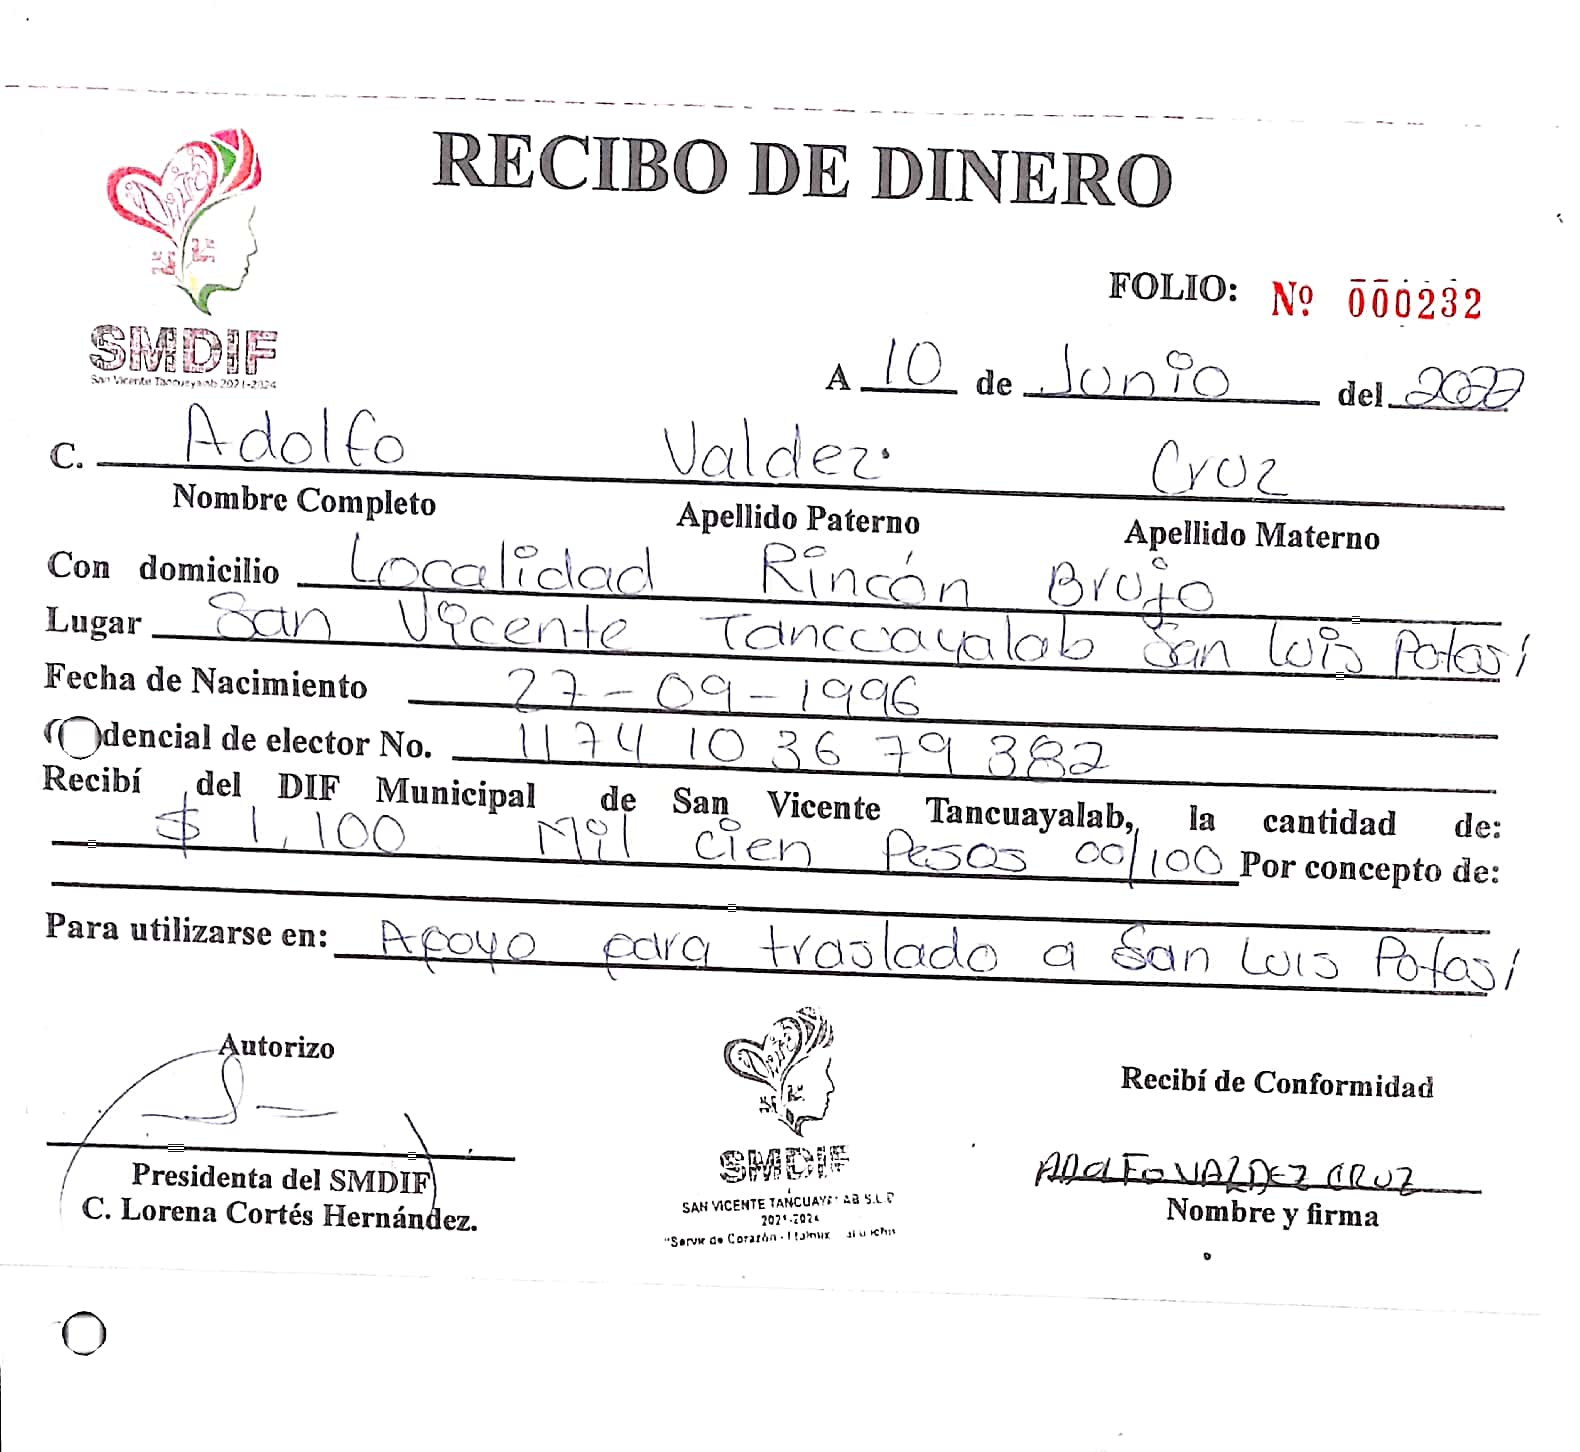 RECIBO DE DINERO
FOLIO: Nº 000232
SMDIF
San Vicente Tancuayalab 2021-2024
A 10 de Junio del 2022
C. Adolfo Valdez Cruz
Nombre Completo Apellido Paterno Apellido Materno
Con domicilio Localidad Rincón Brujo
Lugar San Vicente Tancuayalab San Luis Potosí
Fecha de Nacimiento 27-09-1996
dencial de elector No. 1174103679382
Recibí del DIF Municipal de San Vicente Tancuayalab, la cantidad de:
$ 1,100 Mil cien Pesos 00/100 Por concepto de:
Para utilizarse en: Apoyo para traslado a San Luis Potosí
Autorizo
Recibí de Conformidad
Presidenta del SMDIF
C. Lorena Cortés Hernández.
SMDIF
SAN VICENTE TANCUAYALAB S.L.P
2021-2024
"Servir de Corazón
ADOLFO VALDEZ CRUZ
Nombre y firma